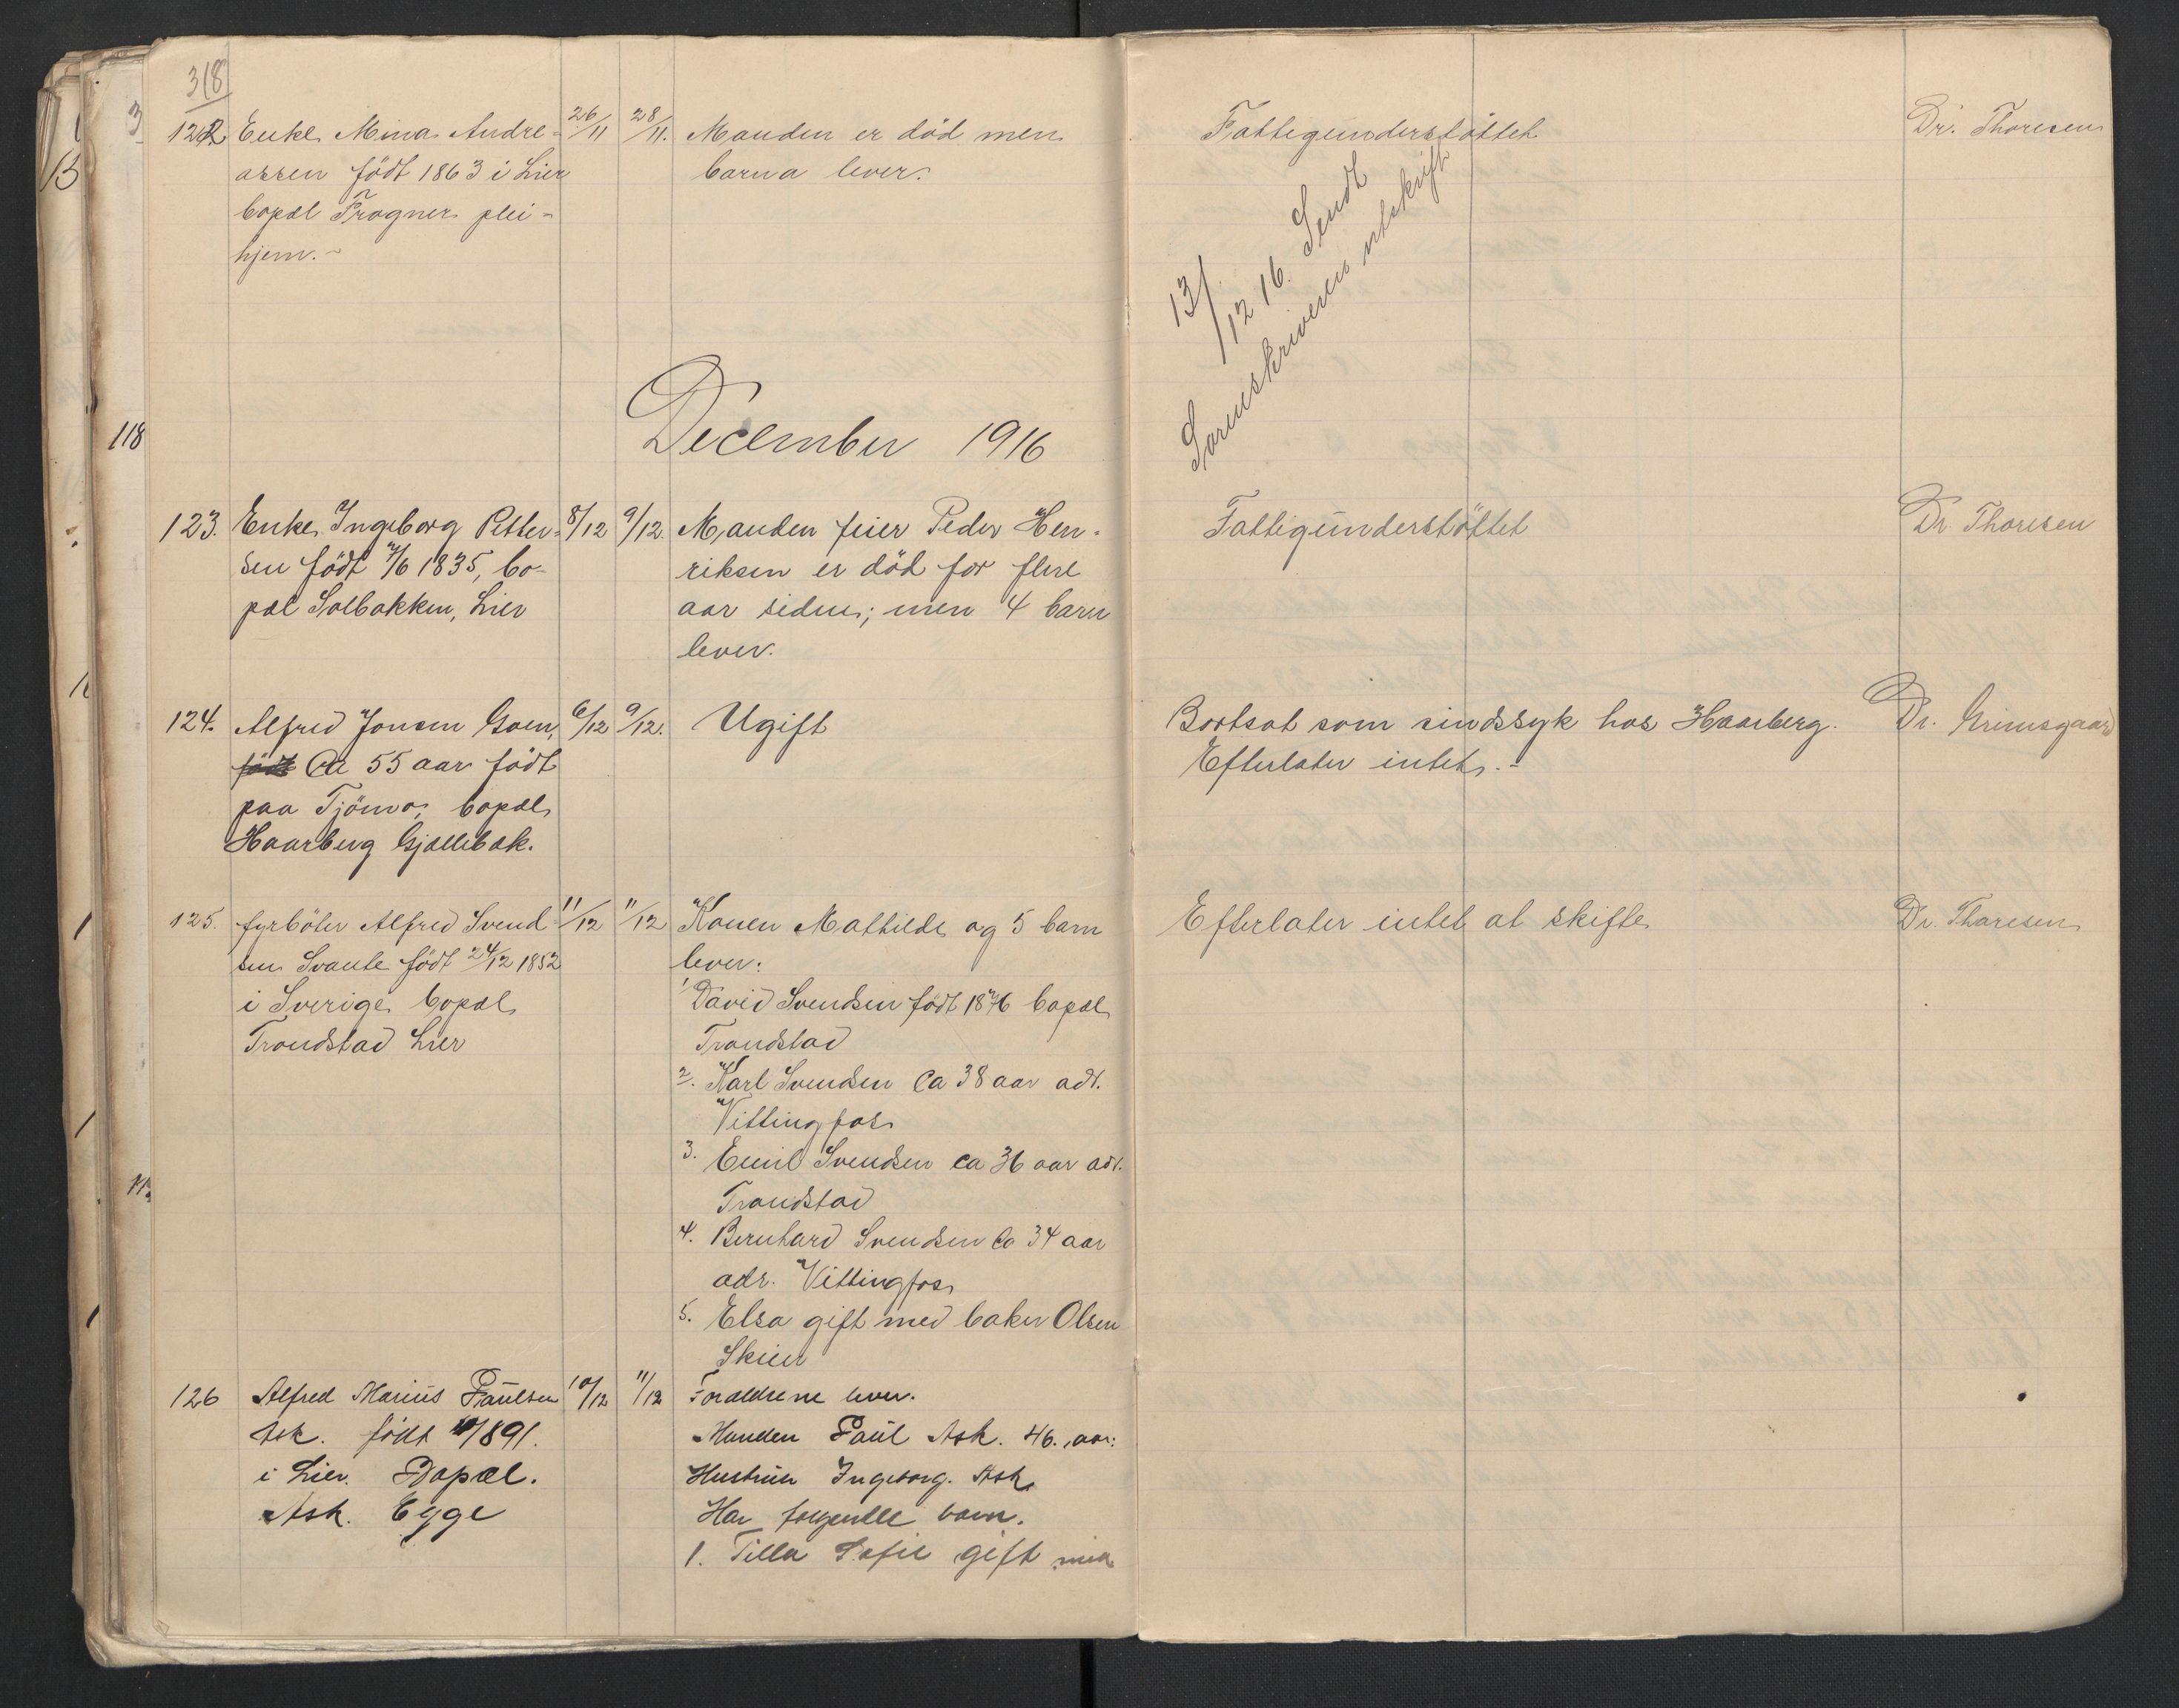 318
122 Enke Mina Andre- 26/11 28/11. Manden er död men Fattigunderstöttet Dr. Thoresen
assen födt 1863 i Lier barna lever.
bopæl Frogner plei-
hjem.-
13/12 16. Sendt
Sorenskriveren utskrift
December 1916
118
123. Enke Ingeborg Petter- 8/12 9/12. Manden feier Peder Hen- Fattigunderstöttet Dr Thoresen
sen födt 7/6 1835, bo- riksen er död for flere
pæl Solbakken, Lier aar siden; men 4 barn
lever.
124. Alfred Jonsen Goen, 6/12 9/12. Ugift Bortsat som sindssyk hos Haarberg. Dr. Grimsgaard
födt Ca 55 aar födt Efterlater intet.-
paa Tjömö, bopæl
Haarberg Gjellebæk.
125. fyrböter Alfred Svend- 11/12 11/12 Konen Mathilde og 5 barn Efterlater intet at skifte Dr. Thoresen
sen Svante födt 24/12 1852 lever:
i Sverige bopæl 1 David Svendsen födt 1876 bopæl
Trondstad Lier Trondstad
2. Karl Svendsen Ca 38 aar adr.
Vittingfoss
3. Emil Svendsen ca 36 aar adr.
Trondstad
4. Bernhard Svendsen Ca 34 aar
adr. Vittingfoss
5. Elsa gift med baker Olsen
Skien
126 Alfred Marius Paulsen 10/12 11/12 Foraldrene lever.
Ask. födt 1891. Manden Paul Ask. 46. aar:
i Lier. Bopæl. Hustruen Ingeborg. Ask.
Ask. Egge Har folgende barn.
1. Tilla Sofie gift med